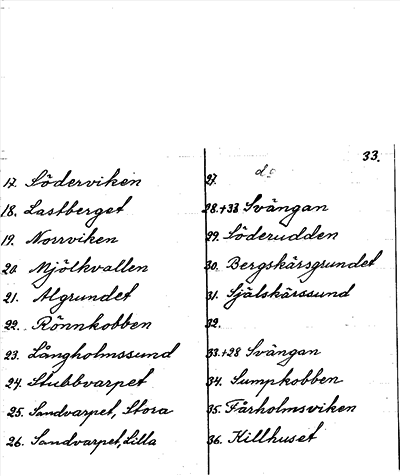 33.
17. Söderviken
18. Lastberget
19. Norrviken
20. Mjölkvallen
21. Algrundet
22. Rönnkobben
23. Långholmssund
24. Stubbvarpet
25. Sandvarpet, Stora
26. Sandvarpet, Lilla
d:o
27.
28.+33 Svängan
29. Söderudden
30. Bergskärsgrundet
31. Själskärssund
32.
33.+28 Svängan
34. Sumpkobben
35. Fårholmsviken
36. Killhuset